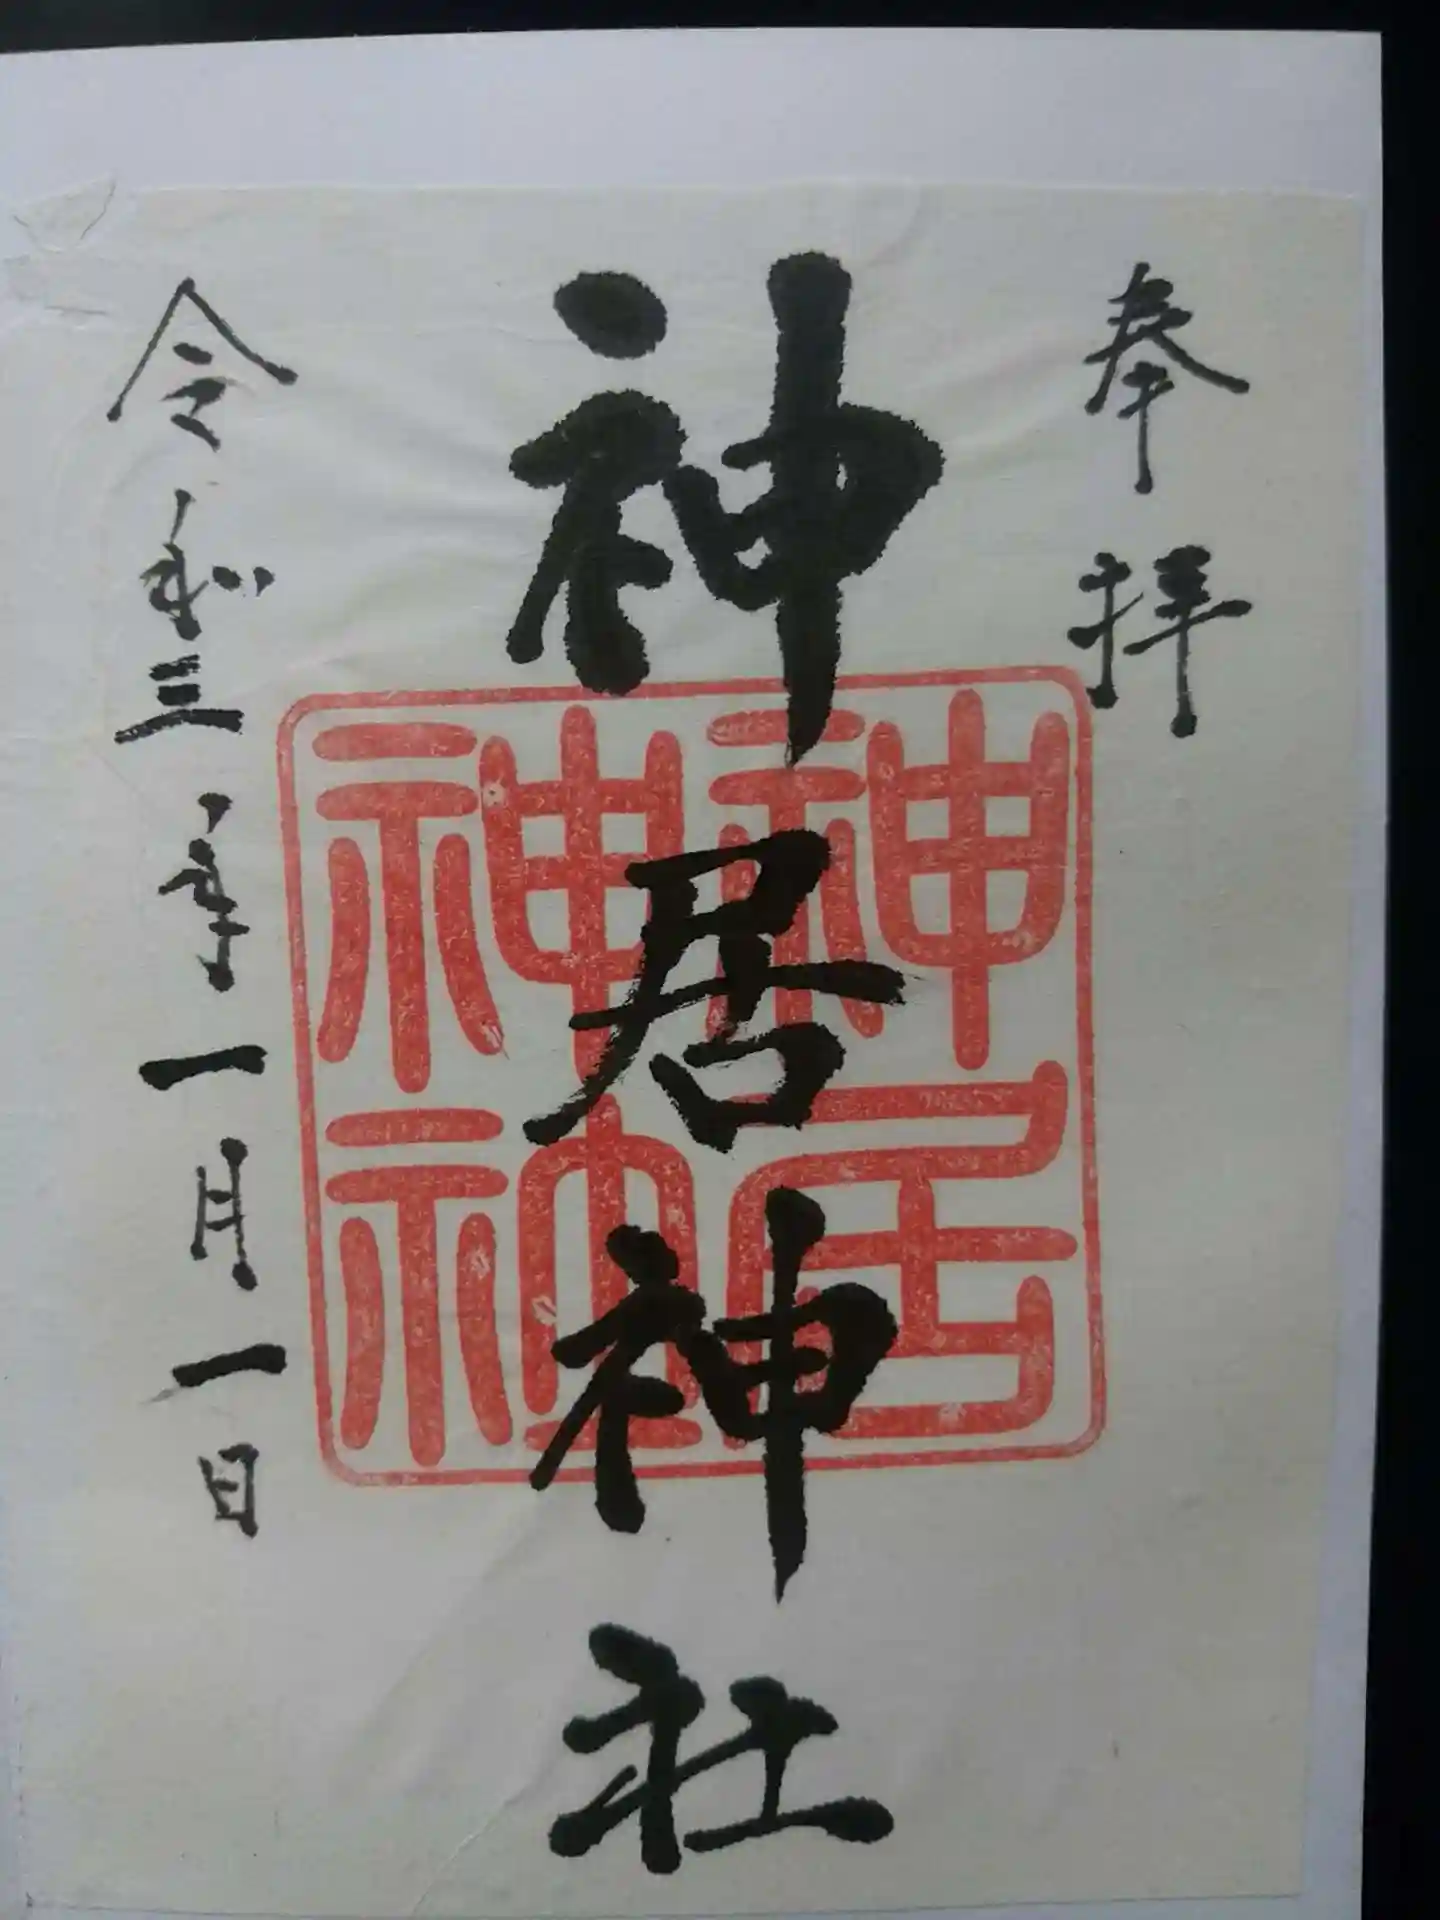 奉拝
神居神社
神居神社
令和三年一月一日